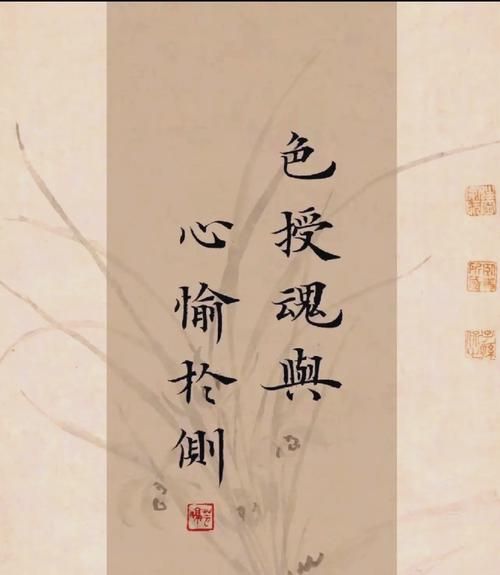 色授魂與
心愉於側